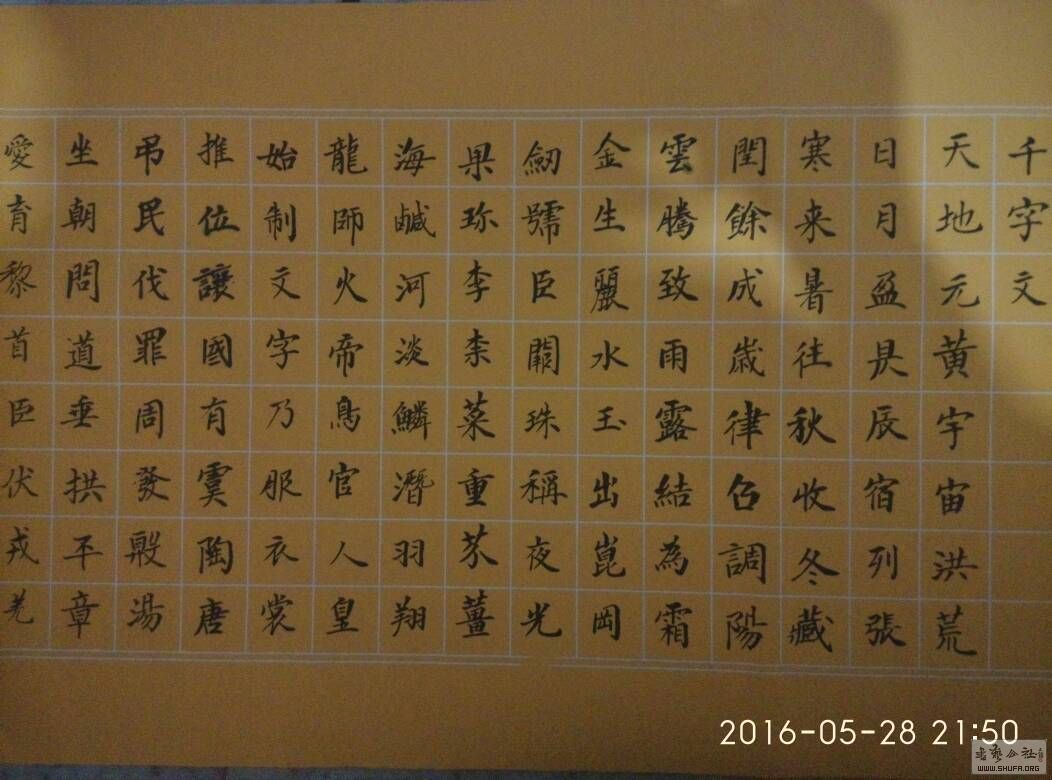 千字文
天地元黄宇宙洪荒
日月盈昃辰宿列張
寒来暑往秋收冬藏
閏餘成歲律召調陽
雲騰致雨露結為霜
金生麗水玉出崑岡
劒號臣闕珠稱夜光
果珎李柰菜重芥薑
海鹹河淡鱗潛羽翔
龍師火帝鳥官人皇
始制文字乃服衣裳
推位讓國有虞陶唐
弔民伐罪周發殷湯
坐朝問道垂拱平章
愛育黎首臣伏戎羌
2016-05-28 21:50
WWW.SHUFA.ORG